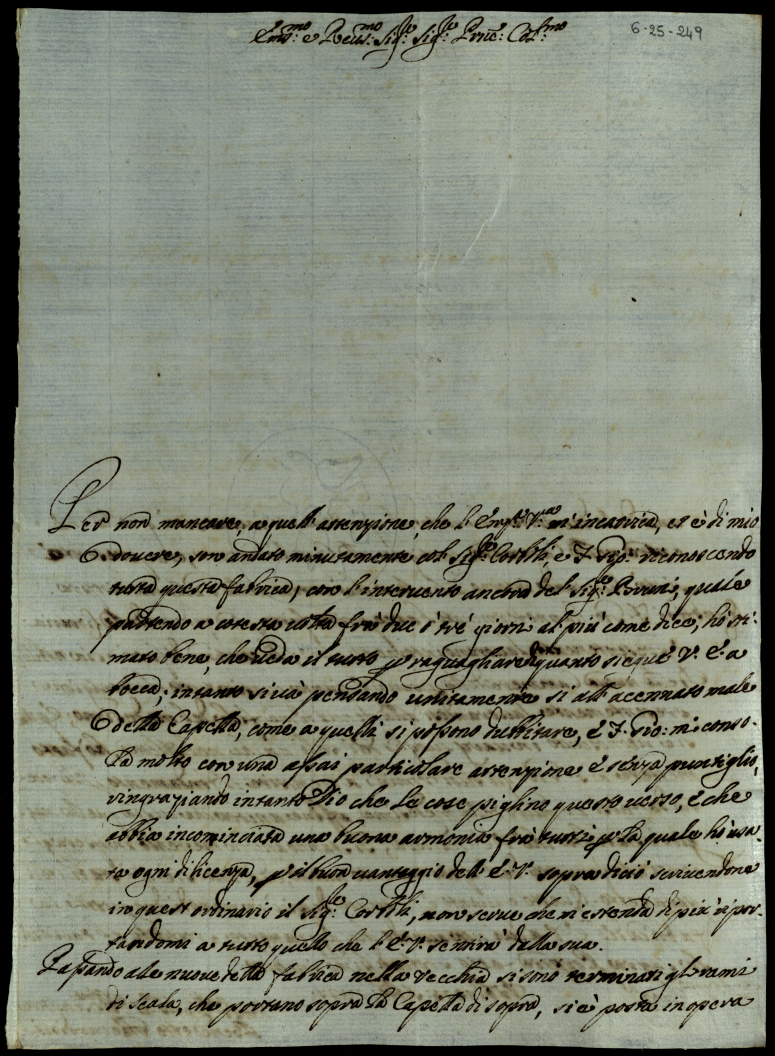 Em.mo e Reu.mo Sig.re Sig.re Prne: Col.mo
6-25-249
Per non mancare, a quell'attenzione, che l'Em.za V.ra m'incarica, et è di mio
douere, son andato minutamente col Sig.re Cortili, e F. Gio: riconoscendo
tutta questa fabrica, con l'interuento ancora del Sig.re Bruni, quale
partendo a cotesta uolta frà due ò trè giorni al più come dice, hò sti-
mato bene, che ueda il tutto p raguagliare quanto siegue V. E. a
bocca; intanto si uà pensando unitamente sì all'acennato male
della Capella, come a quelli si possono dubbitare, è F. Gio: mi conso-
la molto con una assai particolare attenzione è senza puntiglio,
ringraziando intanto Dio che le cose piglino questo uerso, è che
abbia incominciata una buona armonia frà tutti, p la quale hò usa-
ta ogni dilicenza, p il buon uantaggio dell'E. V. sopra di ciò scriuendone
in quest'ordinario il Sig.re Cortili, non serue che m'estenda di più ripor-
tandomi a tutto quello che l'E. V. sentirà dalla sua.
Passando ale nuoue della fabrica nella uecchia si sono terminati gl'rami
di scala, che portano sopra la Capella di sopra, si è posta in opera